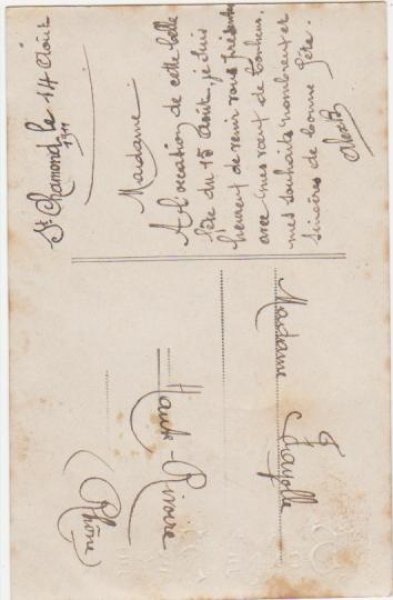 St Chamond le 14 Août
1911
Madame
A l'occasion de cette belle
fête du 15 Août, je suis
heureux de venir vous présenter
avec mes vœux de bonheur,
mes souhaits nombreux et
sincères de bonne fête.
Madame Fayolle
Haute-Rivoire
(Rhône)